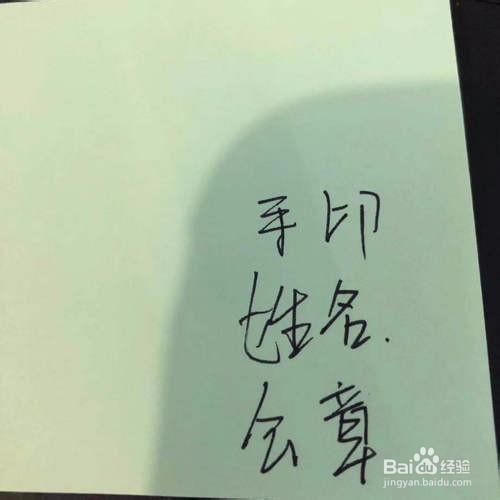 手印
姓名.
公章
Baidu 经验
jingyan.baidu.com